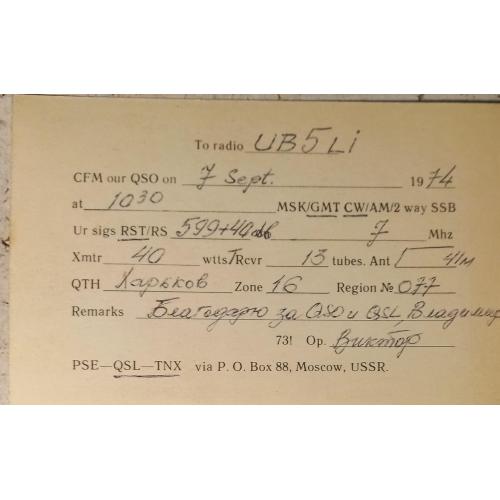 To radio UB5Li
CFM our QSO on 7 Sept. 1974
at 1030 MSK/GMT CW/AM/2 way SSB
Ur sigs RST/RS 599+40db 7 Mhz
Xmtr 40 wtts/Rcvr 13 tubes. Ant 41м
QTH Харьков Zone 16 Region № 077
Remarks Благодарю за QSO и QSL, Владимир
73! Op. Виктор
PSE—QSL—TNX via P. O. Box 88, Moscow, USSR.